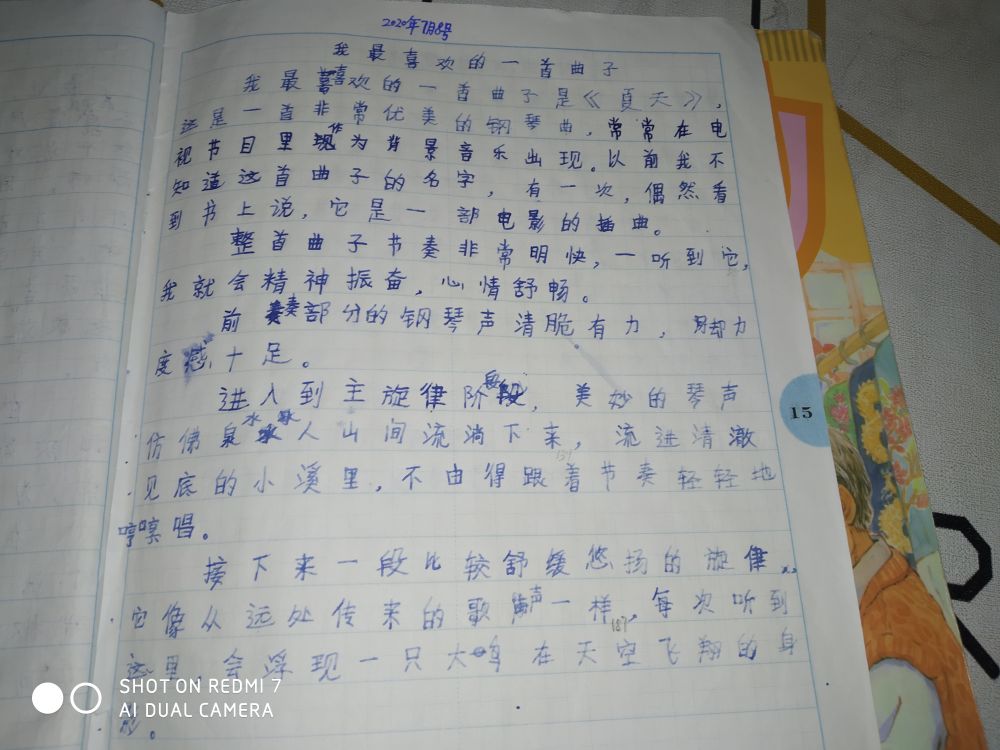 2020年7月8号
我最喜欢的一首曲子
我最喜欢的一首曲子是《夏天》,
这是一首非常优美的钢琴曲,常常在电
视节目里作为背景音乐出现。以前我不
知道这首曲子的名字,有一次,偶然看
到书上说,它是一部电影的插曲。
整首曲子节奏非常明快,一听到它,
我就会精神振奋,心情舒畅。
前奏部分的钢琴声清脆有力,力
度感十足。
进入到主旋律阶段,美妙的琴声
仿佛泉水从山间流淌下来,流进清澈
见底的小溪里,不由得跟着节奏轻轻地
哼唱。
接下来一段比较舒缓悠扬的旋律,
它像从远处传来的歌声一样,每次听到
这里,会浮现一只大鸟在天空飞翔的身
影。
15
137
187
SHOT ON REDMI 7
AI DUAL CAMERA